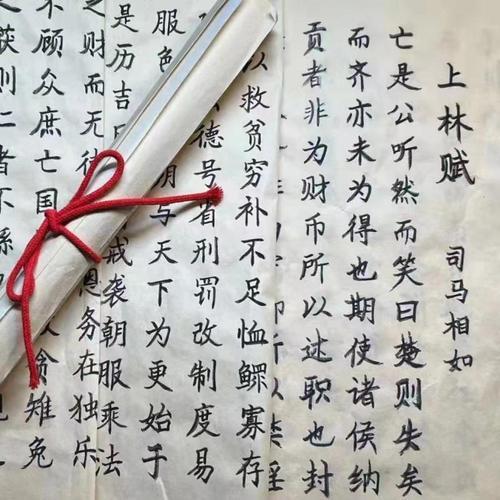 上林赋
司马相如
亡是公听然而笑曰楚则失矣
而齐亦未为得也期使诸侯纳
贡者非为财币所以述职也封
所以禁淫
以救贫穷补不足恤鳏寡存
德号省刑罚改制度易
服色 明与天下为更始于
是历吉日 戒袭朝服乘法
之财而无 恩务在独乐
不顾众庶亡国 贪雉兔
获则 者不繇